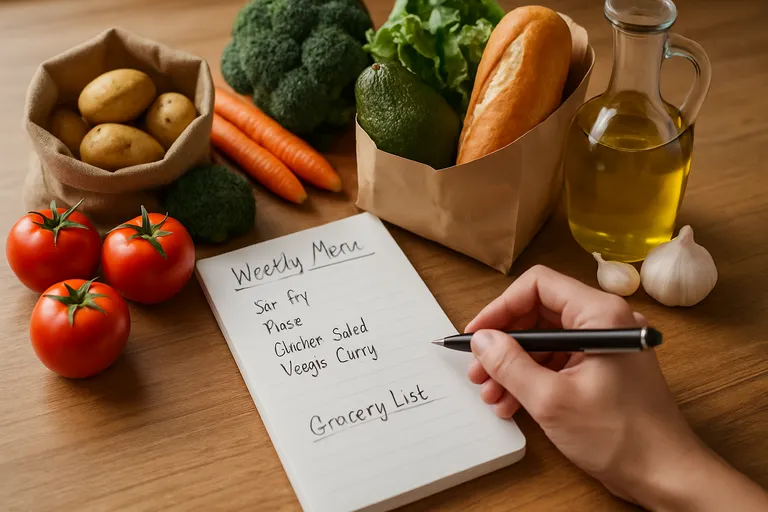 Weetly Menu
Sar fry
Plase
Gluicher Saled
Veegis Curry
Gracery List